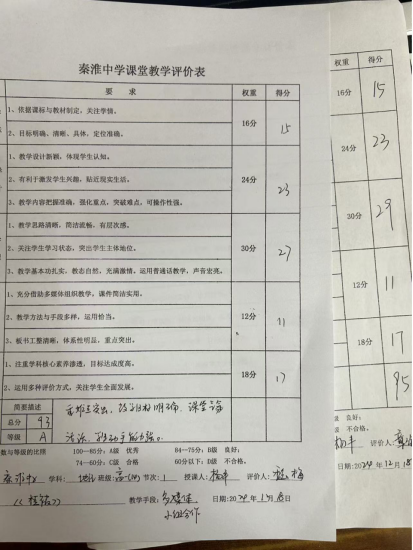 秦淮中学课堂教学评价表
要 求 权重 得分
1、依据课标与教材制定,关注学情。
2、目标明确、清晰、具体,定位准确。
16分 15
1、教学设计新颖,体现学生认知。
2、有利于激发学生兴趣,贴近现实生活。
3、教学内容把握准确,强化重点,突破难点,可操作性强。
24分 23
1、教学思路清晰,简洁流畅,有层次感。
2、关注学生学习状态,突出学生主体地位。
3、教学基本功扎实,教态自然,充满激情,运用普通话教学,声音宏亮。
30分 27
1、充分借助多媒体组织教学,课件简洁实用。
2、教学方法与手段多样,运用恰当。
3、板书工整清晰,体系性明显,重点突出。
12分 11
1、注重学科核心素养渗透,目标达成度高。
2、运用多种评价方式,关注学生全面发展。
18分 17
简要描述
总分 93
等级 A
数与等级的比照 100—85分:A级 优秀 84—75分:B级 良好:
74—60分:C级 合格 60分以下:D级 不合格。
学科: 地理 班级: 节次: 1 授课人: 评价人:
教学手段: 多媒体 日期:2024年
小组合作
权重 得分
16分 15
24分 23
30分 29
12分 11
18分 17
95
良好:
级 不合格。
评价人:
日期:2024年12月18